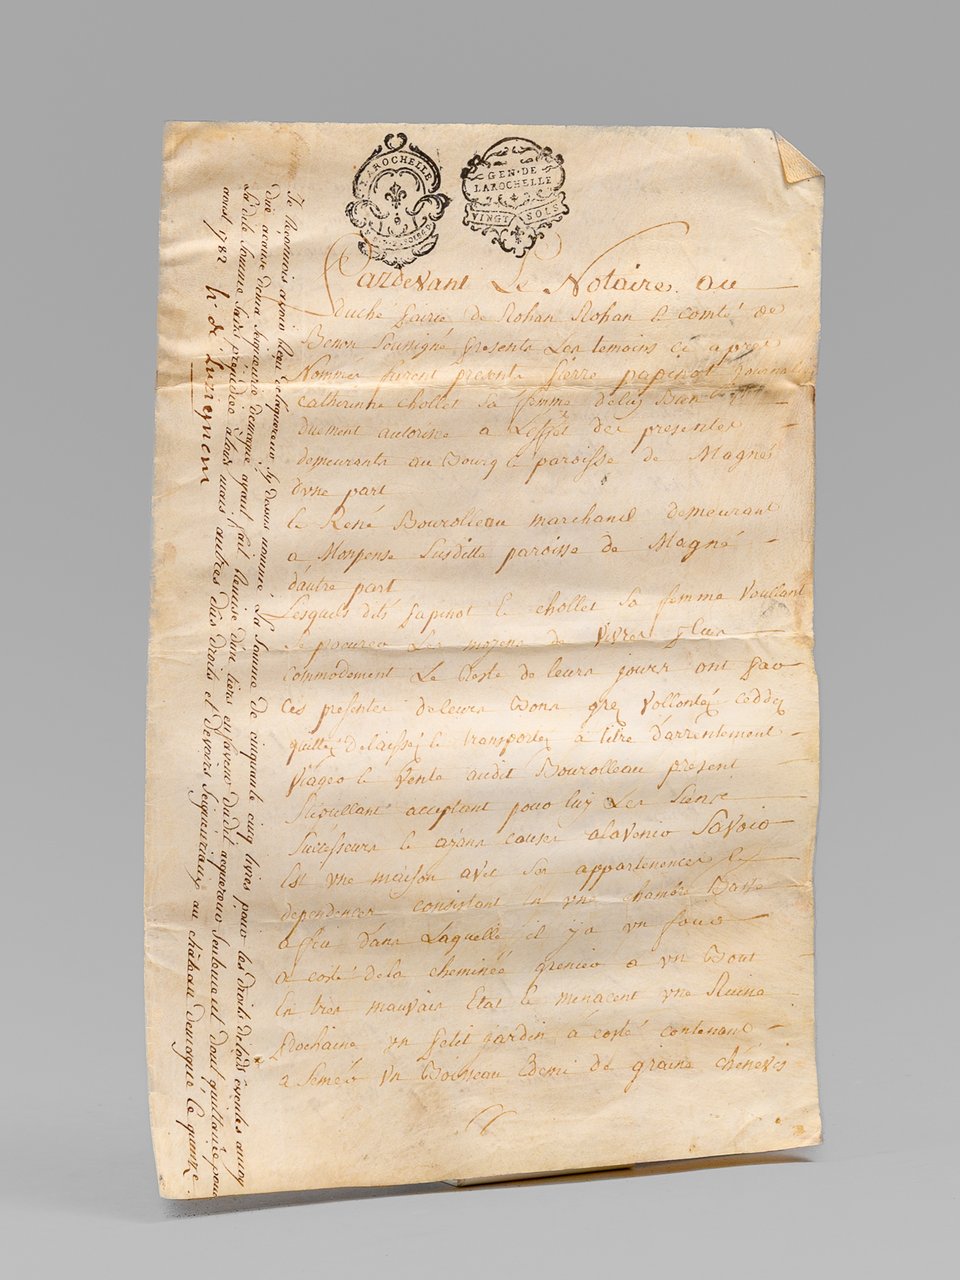 LAROCHELLE
GEN·DE
LAROCHELLE
VINGT SOLS
Pardevant Le Notaire au
Duché pairie de Rohan Rohan & comté de
Benon Soussigné presents Les temoins cy apres
Nommés furent presents pierre papinot Journal
Catherine chollet Sa femme deluy Bien
Duement autorisée a Leffet des presentes
demeurants au Bourg & paroisse de Magné
dvne part
le René Bourolleau marchand demeurant
a Morpense Susditte paroisse de Magné
dautre part
Lesquels dits papinot & chollet Sa femme Voullant
Se procurer Les moyens de Vivre plus
commodement Le Reste de leurs jours ont par
Ces presentes deleurs Bons grez Vollontéz ceddez
quittéz delaissez & transportéz a titre Darrentement
Viager & Vente audit Bourolleau present
Stipullant acceptant pour luy Les Siens
Successeurs & ayans causes alavenir Savoir
Est vne maison avec Ses appartenences &
dependences consistant En vne chambre Basse
a feu dans Laquelle il y a vn four
a costé dela cheminée grenier a vn Bout
En tres mauvais Etat & menacent vne Ruine
prochaine vn petit jardin a costé contenant
a Semer vn Boisseau & demi de graine chenevis
Je Reconnois avoir Reçu delaquereur cy dessus nommé La Somme de cinquante cinq livres pour les droits de lods & ventes auroy
due acause dema Seigneurie demagné ayant fait Remise dun tiers enfaveur dudit acquereur Seulement dont quittance pour
La ditte Somme Sans prejudice alous mais autres dus droits et devoirs Seigneuriaux au château demagné le quinze
aoust 1782